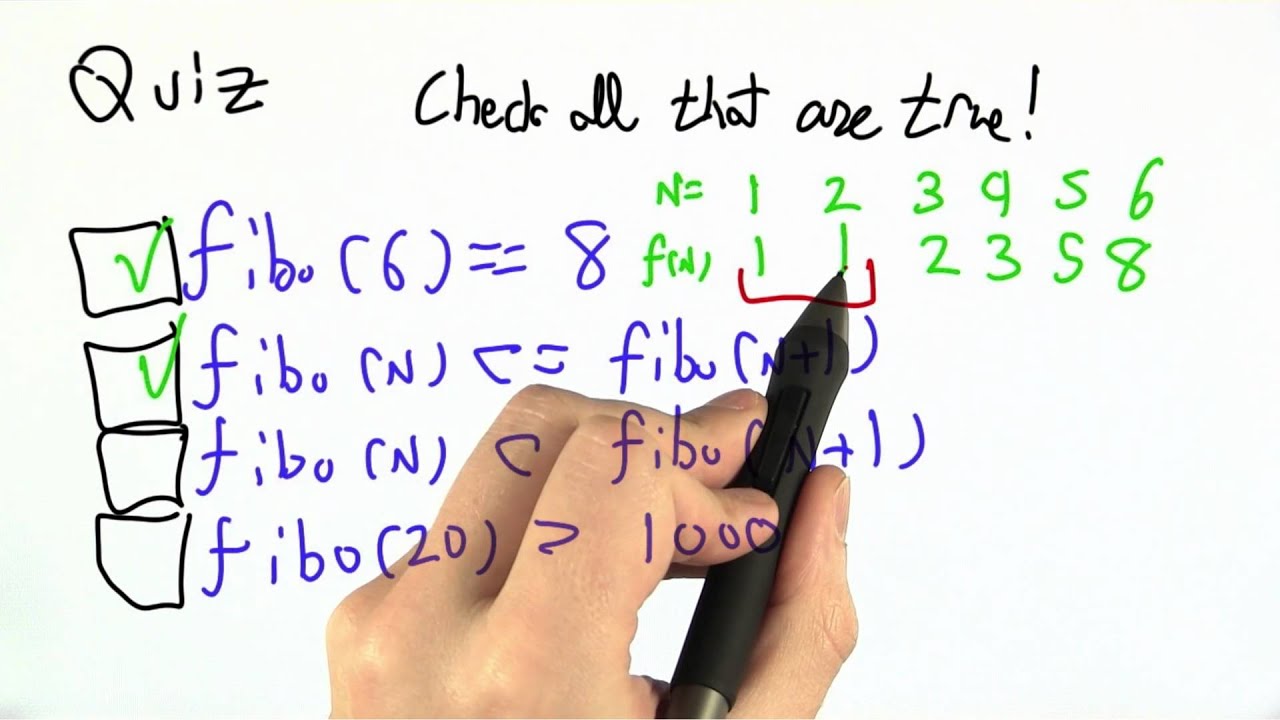 Quiz
Check all that are true!
N= 1 2 3 4 5 6
f(N) 1 1 2 3 5 8
✓ fibo(6) == 8
✓ fibo(N) <= fibo(N+1)
fibo(N) < fibo(N+1)
fibo(20) > 1000